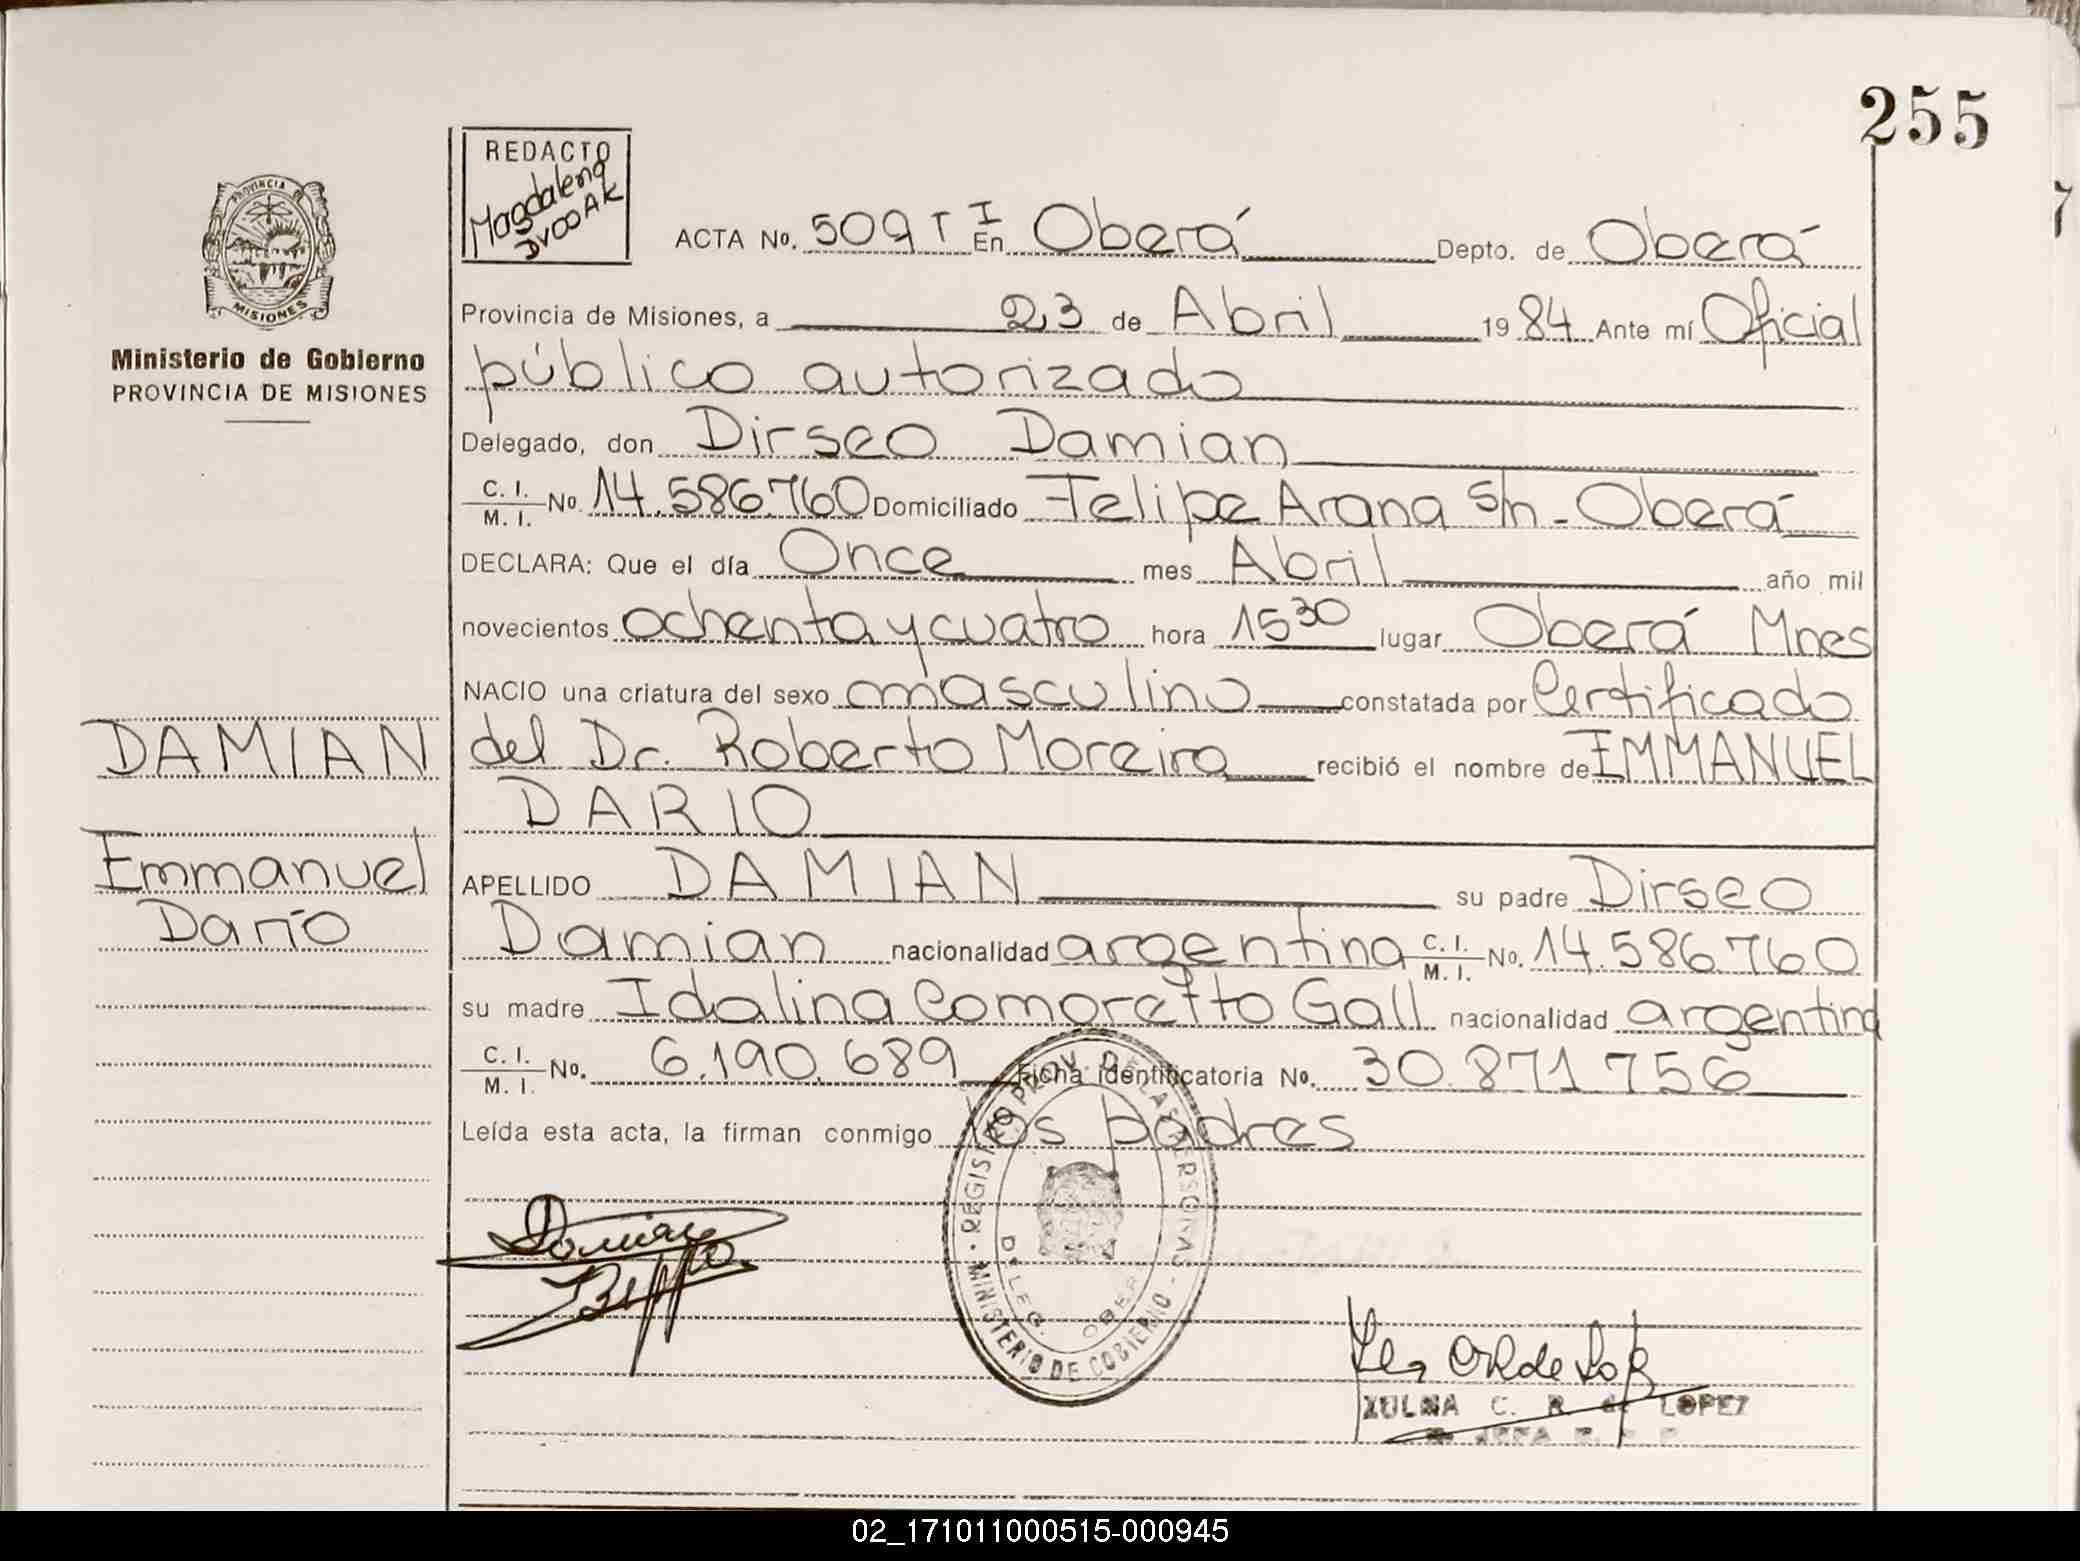 255
REDACTO
Magdalena
DVOOAK
PROVINCIA
MISIONES
Ministerio de Gobierno
PROVINCIA DE MISIONES
ACTA No. 509 T I En Oberá Depto. de Oberá
Provincia de Misiones, a 23 de Abril 1984 Ante mí Oficial
público autorizado
Delegado, don Dirseo Damian
C. I. / M. I. No. 14.586.760 Domiciliado Felipe Arana s/n - Oberá
DECLARA: Que el día Once mes Abril año mil
novecientos ochenta y cuatro hora 15 30 lugar Oberá Mnes
NACIO una criatura del sexo masculino constatada por Certificado
del Dr. Roberto Moreira recibió el nombre de EMMANUEL
DARIO
DAMIAN
Emmanuel
Darío
APELLIDO DAMIAN su padre Dirseo
Damian nacionalidad argentina C. I. / M. I. No. 14.586.760
su madre Idalina Comoretto Gall nacionalidad argentina
C. I. / M. I. No. 6.190.689 Ficha identificatoria No. 30.871.756
Leída esta acta, la firman conmigo los padres
REGISTRO PROV. DE LAS PERSONAS
MINISTERIO DE GOBIERNO
DELEG. OBERA
Damian
ZULMA C. R. de LOPEZ
JEFA
02_171011000515-000945